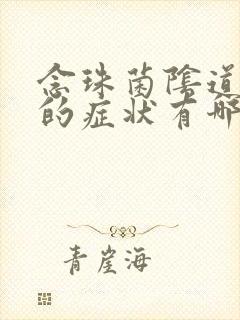 念珠菌陰道
的症状有哪
青崖海